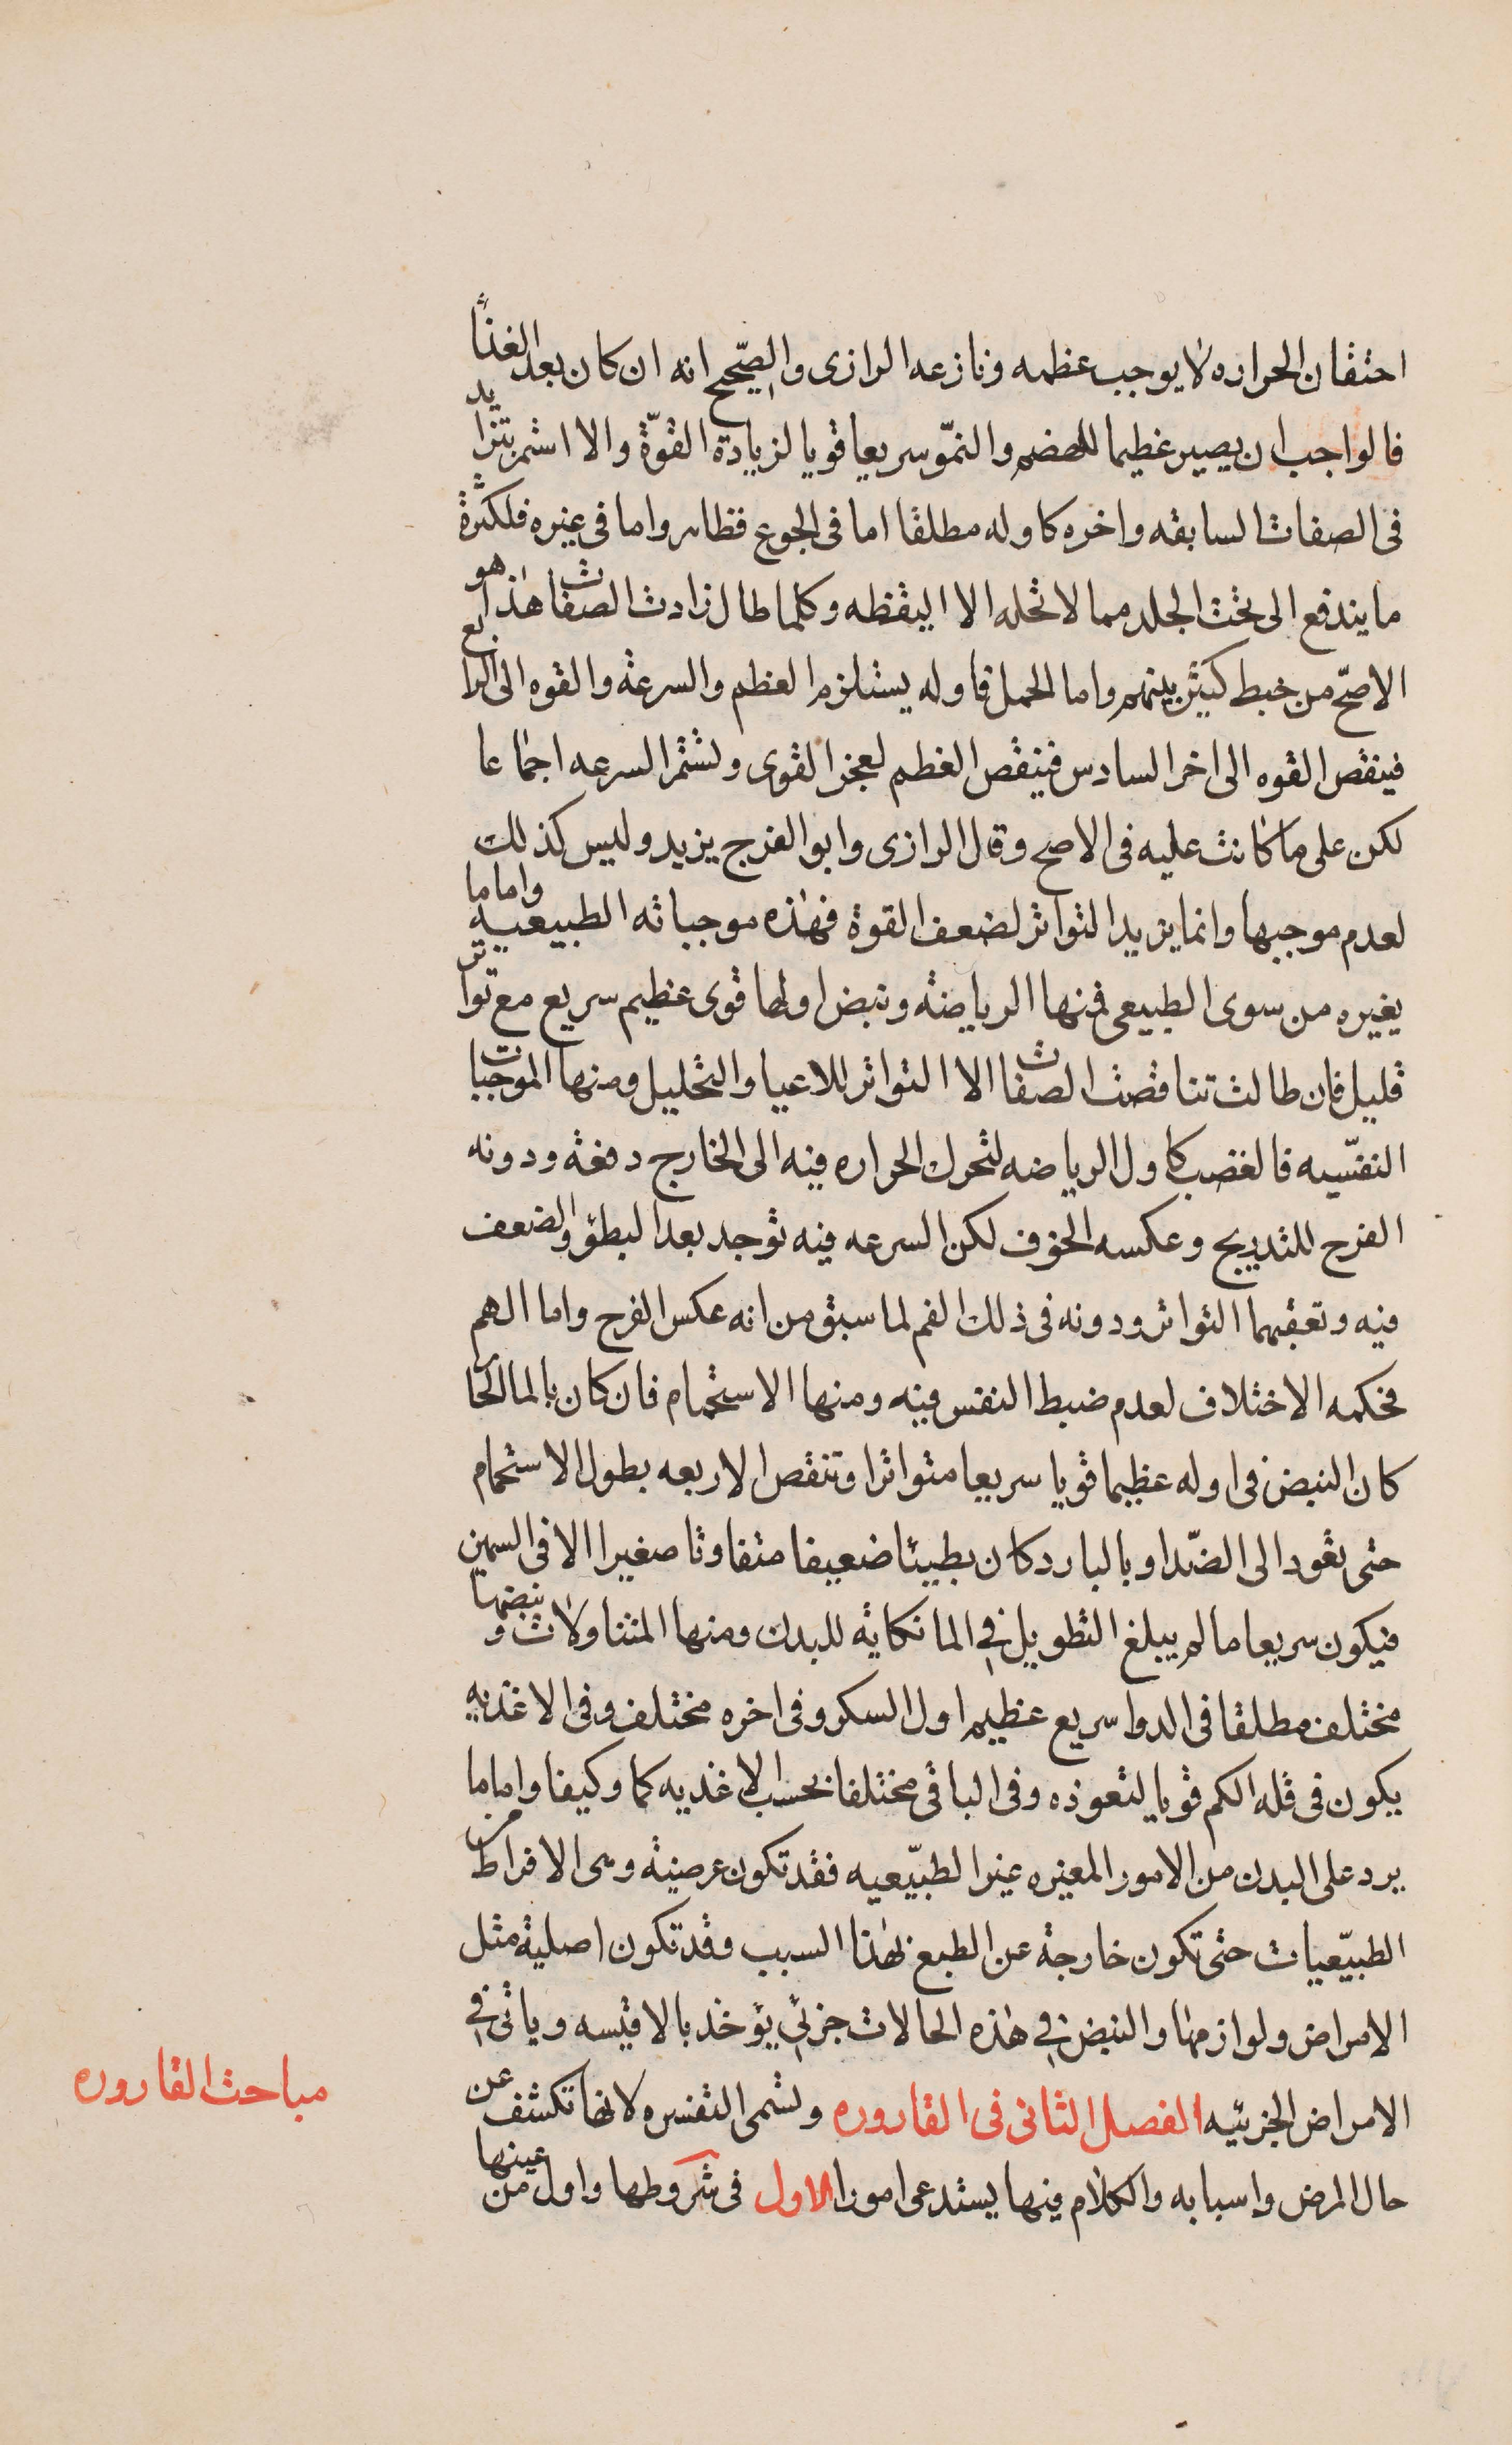 احتقان الحراره لا يوجب عظمه ونازعه الرازى والصّحيح انه ان كان بعد الغذا
فالواجب ان يصير عظيما للهضم والنموّ سريعا قويا لزيادة القوّة والا استمر يتزايد
فى الصفات السابقه واخره كاوله مطلقا اما فى الجوع فظاهر واما فى غيره فلكثرة
ما يندفع الى تحت الجلد مما لا تحله الا اليقظه وكلما طال زادت الصفات هذا هو
الاصحّ من خبط كثير بينهم واما الحمل فاوله يستلزم العظم والسرعة والقوه الى الرابع
فينقص القوه الى اخر السادس فينقص العظم لعجز القوى وتستمر السرعه اجماعا
لكن على ما كانت عليه فى الاصح وقال الرازى وابو الفرج يزيد وليس كذلك
لعدم موجبها وانما يزيد التواتر لضعف القوة فهذه موجباته الطبيعية واما ما
يغيره من سوى الطبيعى فمنها الرياضة ونبض اولها قوى عظيم سريع مع تواتر
قليل فان طالت تناقصت الصفات الا التواتر للاعيا والتحليل ومنها الموجبات
النفسّيه فالغضب كاول الرياضه لتحرك الحراره فيه الى الخارج دفعة ودونه
الفرح للتدريج وعكسه الخوف لكن السرعه فيه توجد بعد البطؤ والضعف
فيه وتعقبهما التواتر ودونه فى ذلك الغم لما سبق من انه عكس الفرح واما الهم
فحكمه الاختلاف لعدم ضبط النفس فيه ومنها الاستحمام فان كان بالما الحار
كان النبض فى اوله عظيما قويا سريعا متواترا وتنقص الاربعه بطول الاستحمام
حتى تعود الى الضّد او بالبارد كان بطيئا ضعيفا متفاوتا صغيرا الا فى السمين
فيكون سريعا ما لم يبلغ التطويل فى الما نكاية للبدن ومنها المتناولات ونبضها
مختلف مطلقا فى الدوا سريع عظيم اول السكر وفى اخره مختلف وفى الاغذيه
يكون فى قلة الكم قويا لتعوذه وفى الباقى مختلفا بحسب الاغذيه كما وكيفا واما ما
يرد على البدن من الامور المغيره غير الطبيّعيه فقد تكون عرضية وهى الافراط من
الطبيّعيات حتى تكون خارجة عن الطبع بهذا السبب وقد تكون اصلية مثل
الامراض ولوازمها والنبض فى هذه الحالات جزئي يؤخذ بالاقيسه وياتى فى
الامراض الجزئيه الفصل الثانى فى القاروره وتسمى التفسره لانها تكشف عن
حال المرض واسبابه والكلام فيها يستدعى امورا الاول فى شروطها واول من عينها
مباحث القاروره